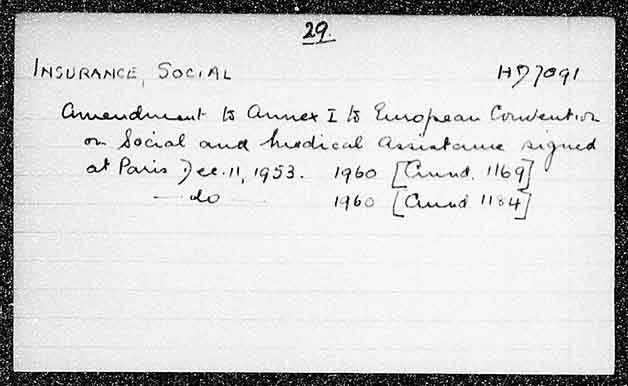 29.
INSURANCE, SOCIAL HD7091
Amendment to Annex I to European Convention
on Social and Medical Assistance signed
at Paris Dec. 11, 1953. 1960 [Cmnd. 1169]
— do — 1960 [Cmnd 1184]